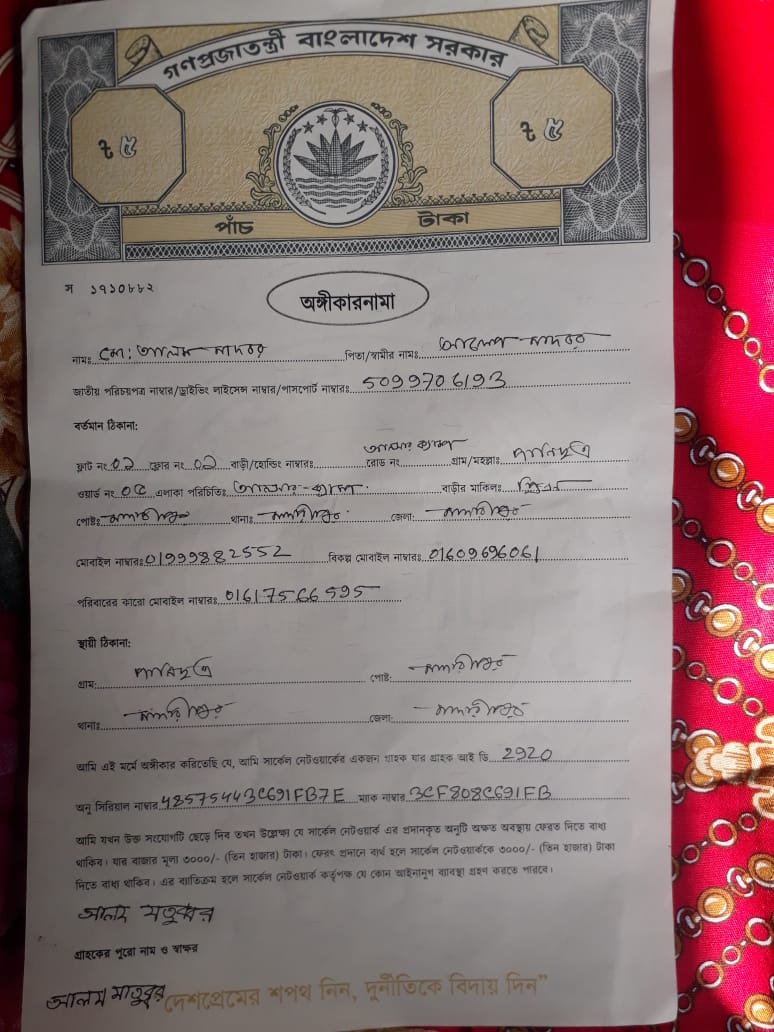 গণপ্রজাতন্ত্রী বাংলাদেশ সরকার
৳ ৫ ৳ ৫
পাঁচ টাকা
স ১৭১০৮৮২
অঙ্গীকারনামা
নামঃ মো: আলম মাদবর পিতা/স্বামীর নামঃ মাদবর
জাতীয় পরিচয়পত্র নাম্বার/ড্রাইভিং লাইসেন্স নাম্বার/পাসপোর্ট নাম্বারঃ 5099706193
বর্তমান ঠিকানা:
ফ্লাট নং ০২ ফ্লোর নং ০২ বাড়ী/হোল্ডিং নাম্বারঃ রোড নং গ্রাম/মহল্লাঃ
ওয়ার্ড নং ০৫ এলাকা পরিচিতিঃ বাড়ীর মালিকঃ
পোষ্টঃ মাদারীপুর থানাঃ মাদারীপুর জেলা: মাদারীপুর
মোবাইল নাম্বারঃ 01999882552 বিকল্প মোবাইল নাম্বারঃ 01609696061
পরিবারের কারো মোবাইল নাম্বারঃ 01617566595
স্থায়ী ঠিকানা:
গ্রাম: পোষ্ট: মাদারীপুর
থানাঃ মাদারীপুর জেলা: মাদারীপুর
আমি এই মর্মে অঙ্গীকার করিতেছি যে, আমি সার্কেল নেটওয়ার্কের একজন গ্রাহক যার গ্রাহক আই ডি 2920
অনু সিরিয়াল নাম্বার 48575443C691FB7E ম্যাক নাম্বার 3CF808C691FB
আমি যখন উক্ত সংযোগটি ছেড়ে দিব তখন উল্লেক্ষ্য যে সার্কেল নেটওয়ার্ক এর প্রদানকৃত অনুটি অক্ষত অবস্থায় ফেরত দিতে বাধ্য
থাকিব। যার বাজার মূল্য ৩০০০/- (তিন হাজার) টাকা। ফেরৎ প্রদানে ব্যর্থ হলে সার্কেল নেটওয়ার্ককে ৩০০০/- (তিন হাজার) টাকা
দিতে বাধ্য থাকিব। এর ব্যতিক্রম হলে সার্কেল নেটওয়ার্ক কর্তৃপক্ষ যে কোন আইনানুগ ব্যবস্থা গ্রহণ করতে পারবে।
আলম মাতুব্বর
গ্রাহকের পুরো নাম ও স্বাক্ষর
আলম মাতুব্বর
দেশপ্রেমের শপথ নিন, দুর্নীতিকে বিদায় দিন"